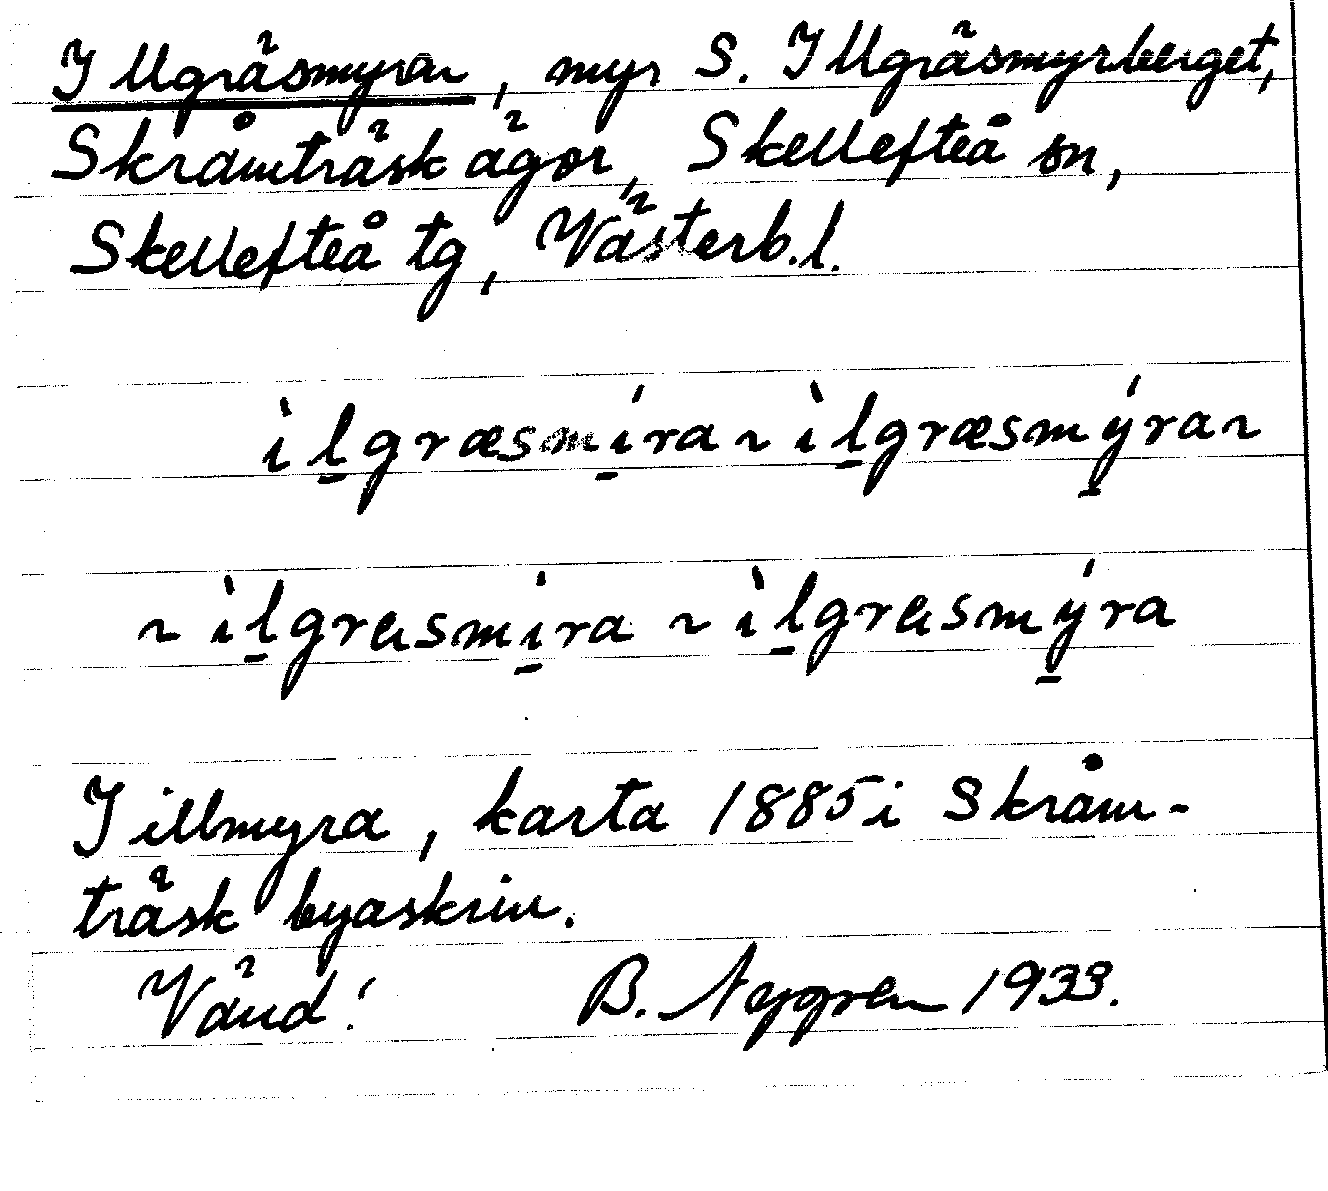 Illgräsmyran, myr S. Illgräsmyrberget,
Skråmträsk ägor, Skellefteå sn,
Skellefteå tg, Västerb.l.
ìl̲græsmí̲ra ~ ìl̲græsmý̲ra ~
~ ìl̲grasmí̲ra ~ ìl̲grasmý̲ra
Iillmyra, karta 1885 i Skråm-
träsk byaskrin.
Vänd! B. Nygren 1933.